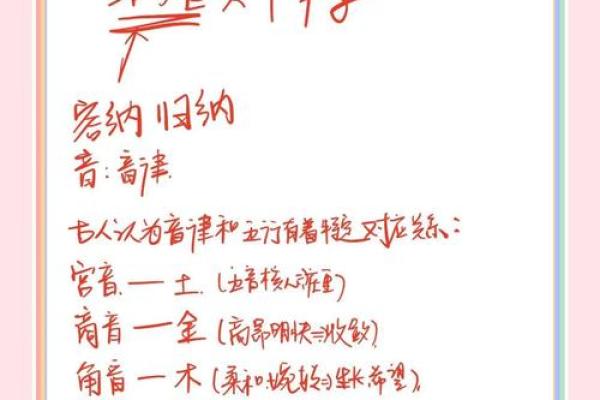 容纳 归纳
音:音律.
古人认为音律和五行有着特定对应关系:
宫音.一土.(五音核心庄重)
商音一金(高昂明快⇒收敛)
角音一木(柔和.婉转⇒生长希望),